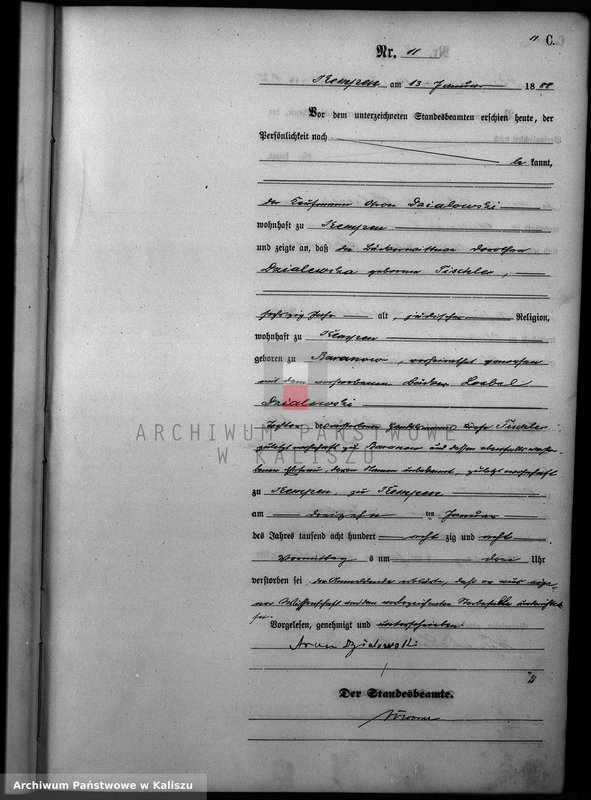 11 C.
Nr. 11
Kempen am 13. Januar 1888
Vor dem unterzeichneten Standesbeamten erschien heute, der
Persönlichkeit nach
be kannt,
der Kaufmann Aron Dzialowski
wohnhaft zu Kempen
und zeigte an, daß die Bäckerwittwe Dorothea
Dzialowska geborene Tischler,
sechszig Jahr alt, jüdischer Religion,
wohnhaft zu Kempen
geboren zu Baranow, verheirathet gewesen
mit dem verstorbenen Bäcker Loebel
Dzialowski
Tochter des verstorbenen Tischler
zuletzt wohnhaft zu Baranow und dessen ebenfalls verstor-
benen Ehefrau, deren Namen unbekannt, zuletzt wohnhaft
zu Kempen, zu Kempen
am dreizehnten Januar
des Jahres tausend acht hundert acht zig und acht
Vormittags um drei Uhr
verstorben sei, der Anmeldende erklärte, daß er aus eige-
ner Wissenschaft von dem vorbezeichneten Sterbefalle unterrichtet
sei.
Vorgelesen, genehmigt und unterschrieben
Aron Dzialowski
Der Standesbeamte.
ARCHIWUM PAŃSTWOWE
W KALISZU
Archiwum Państwowe w Kaliszu